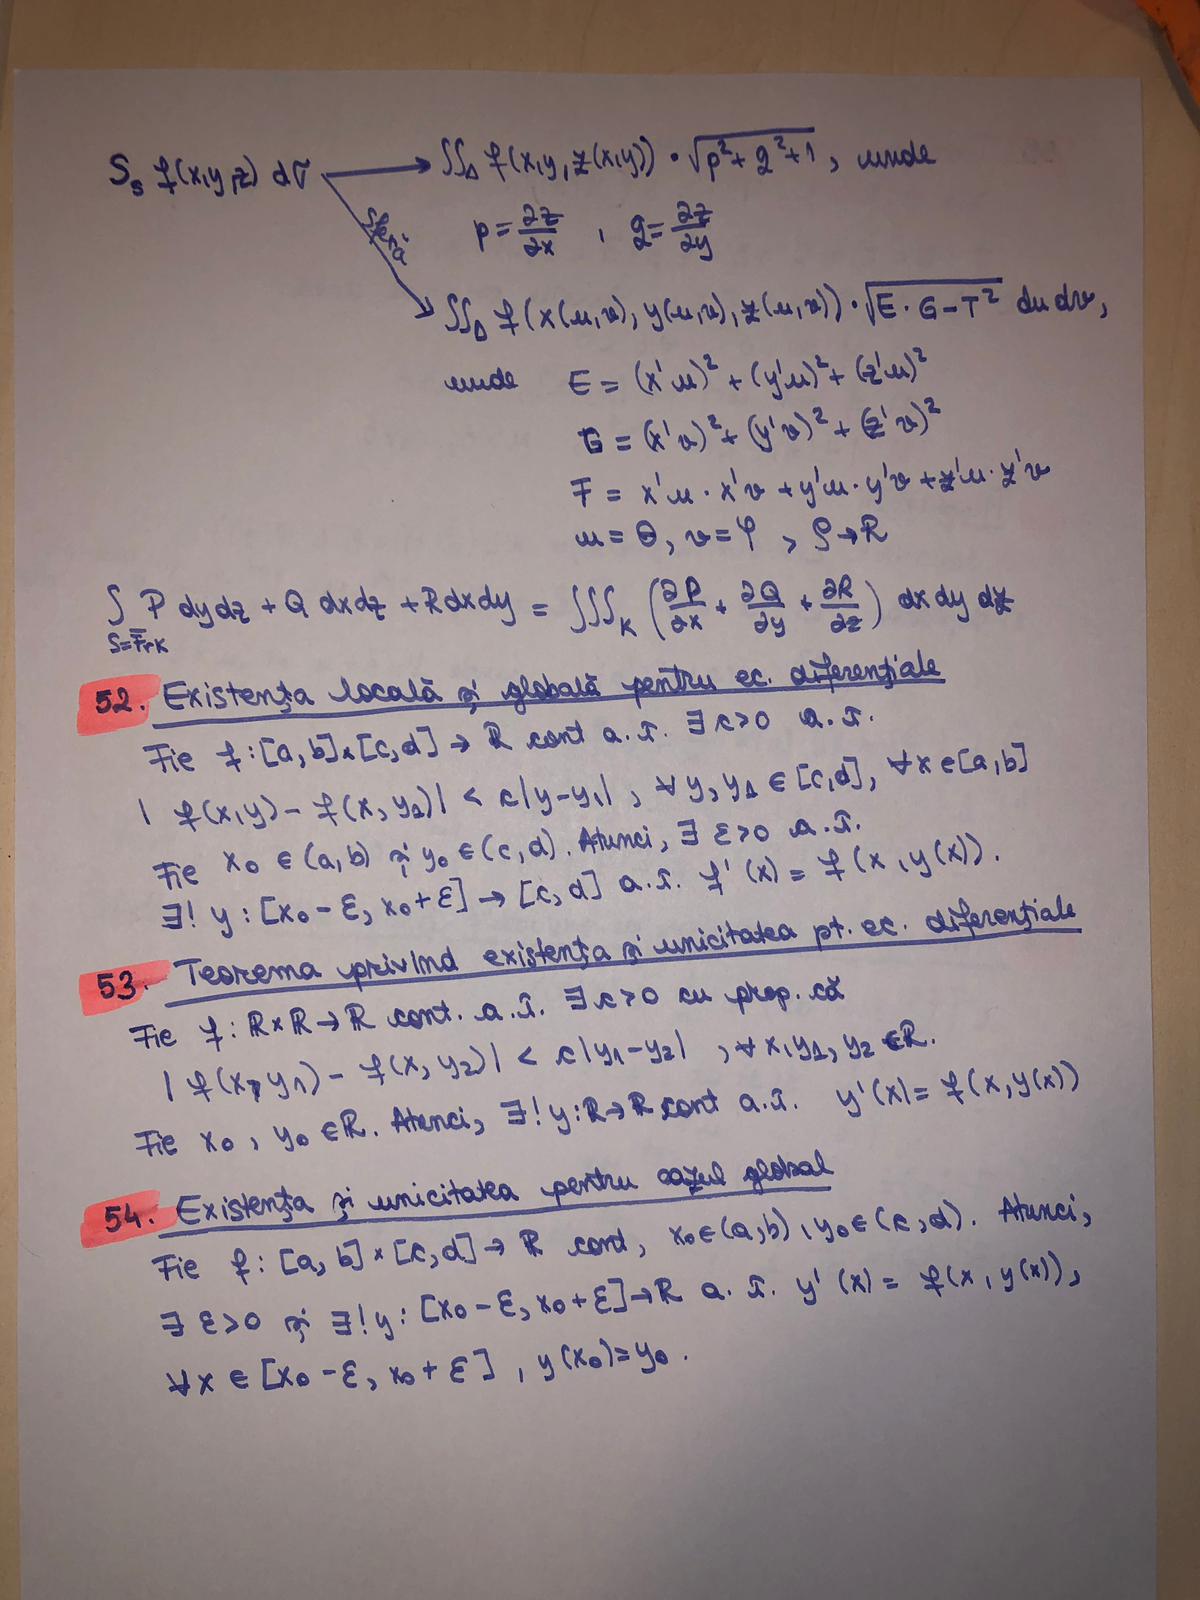 S_s f(x,y,z) dσ → ∬_Δ f(x,y,z(x,y)) · √(p²+q²+1), unde
p = ∂z/∂x , q = ∂z/∂y
sferă
∬_Δ f(x(u,v), y(u,v), z(u,v)) · √(E·G-F²) du dv,
unde E = (x'u)² + (y'u)² + (z'u)²
G = (x'v)² + (y'v)² + (z'v)²
F = x'u · x'v + y'u · y'v + z'u · z'v
u = θ, v = φ , ρ → R
∫_{S=FrK} P dydz + Q dxdz + R dxdy = ∭_K (∂P/∂x + ∂Q/∂y + ∂R/∂z) dx dy dz
52. Existența locală și globală pentru ec. diferențiale
Fie f: [a,b]×[c,d] → R cont a.î. ∃ c>0 a.î.
| f(x,y) - f(x,y₁)| < c|y-y₁| , ∀ y,y₁ ∈ [c,d], ∀x∈[a,b]
Fie x₀ ∈ (a,b) și y₀ ∈ (c,d). Atunci, ∃ ε>0 a.î.
∃! y : [x₀-ε, x₀+ε] → [c,d] a.î. f'(x) = f(x, y(x)).
53. Teorema privind existența și unicitatea pt. ec. diferențiale
Fie f: R×R → R cont. a.î. ∃ c>0 cu prop. că
| f(x, y₁) - f(x, y₂)| < c|y₁-y₂| , ∀ x,y₁, y₂ ∈R.
Fie x₀, y₀ ∈R. Atunci, ∃! y: R→R cont a.î. y'(x) = f(x,y(x))
54. Existența și unicitatea pentru cazul global
Fie f: [a,b]×[c,d] → R cont, x₀∈(a,b), y₀∈(c,d). Atunci,
∃ ε>0 și ∃! y: [x₀-ε, x₀+ε]→R a.î. y'(x) = f(x, y(x)),
∀x ∈ [x₀-ε, x₀+ε] , y(x₀)=y₀.